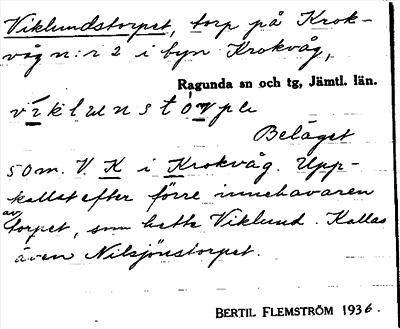 Viklundstorpet, torp på Krok-
våg n:r 2 i byn Krokvåg,
Ragunda sn och tg, Jämtl. län.
víklunstórpe
Beläget
50 m. V. K i Krokvåg. Upp-
kallat efter förre innehavaren
av torpet, som hette Viklund. Kallas
även Nilsjönstorpet.
BERTIL FLEMSTRÖM 1936.